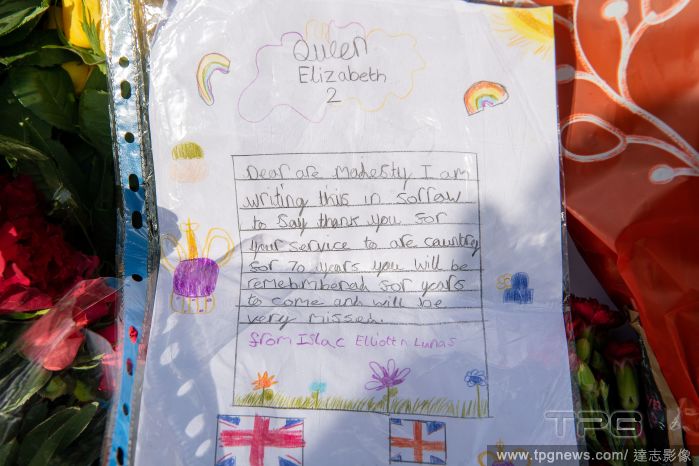 Queen
Elizabeth
2
Dear are Madhesty I am
writing this in sorrow
to say thank you for
your service to are country
for 70 years you will be
remembered for years
to come and will be
very missed.
from Islac Elliott n Lunas
TPG
www.tpgnews.com/達志影像